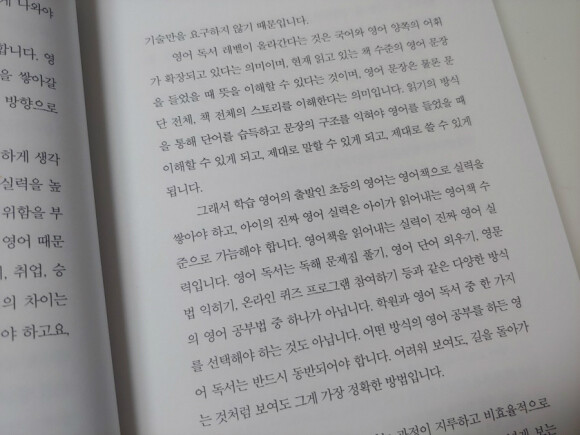 게 나와야
합니다. 영
을 쌓아갈
방향으로
하게 생각
실력을 높
위함을 부
영어 때문
취업, 승
의 차이는
야 하고요.
기술만을 요구하지 않기 때문입니다.
영어 독서 레벨이 올라간다는 것은 국어와 영어 양쪽의 어휘
가 확장되고 있다는 의미이며, 현재 읽고 있는 책 수준의 영어 문장
을 들었을 때 뜻을 이해할 수 있다는 것이며, 영어 문장은 물론 문
단 전체, 책 전체의 스토리를 이해한다는 의미입니다. 읽기의 방식
을 통해 단어를 습득하고 문장의 구조를 익혀야 영어를 들었을 때
이해할 수 있게 되고, 제대로 말할 수 있게 되고, 제대로 쓸 수 있게
됩니다.
그래서 학습 영어의 출발인 초등의 영어는 영어책으로 실력을
쌓아야 하고, 아이의 진짜 영어 실력은 아이가 읽어내는 영어책 수
준으로 가늠해야 합니다. 영어책을 읽어내는 실력이 진짜 영어 실
력입니다. 영어 독서는 독해 문제집 풀기, 영어 단어 외우기, 영문
법 익히기, 온라인 퀴즈 프로그램 참여하기 등과 같은 다양한 방식
의 영어 공부법 중 하나가 아닙니다. 학원과 영어 독서 중 한 가지
를 선택해야 하는 것도 아닙니다. 어떤 방식의 영어 공부를 하든 영
어 독서는 반드시 동반되어야 합니다. 어려워 보여도, 길을 돌아가
는 것처럼 보여도 그게 가장 정확한 방법입니다.
과정이 지루하고 비효율적으로
보는